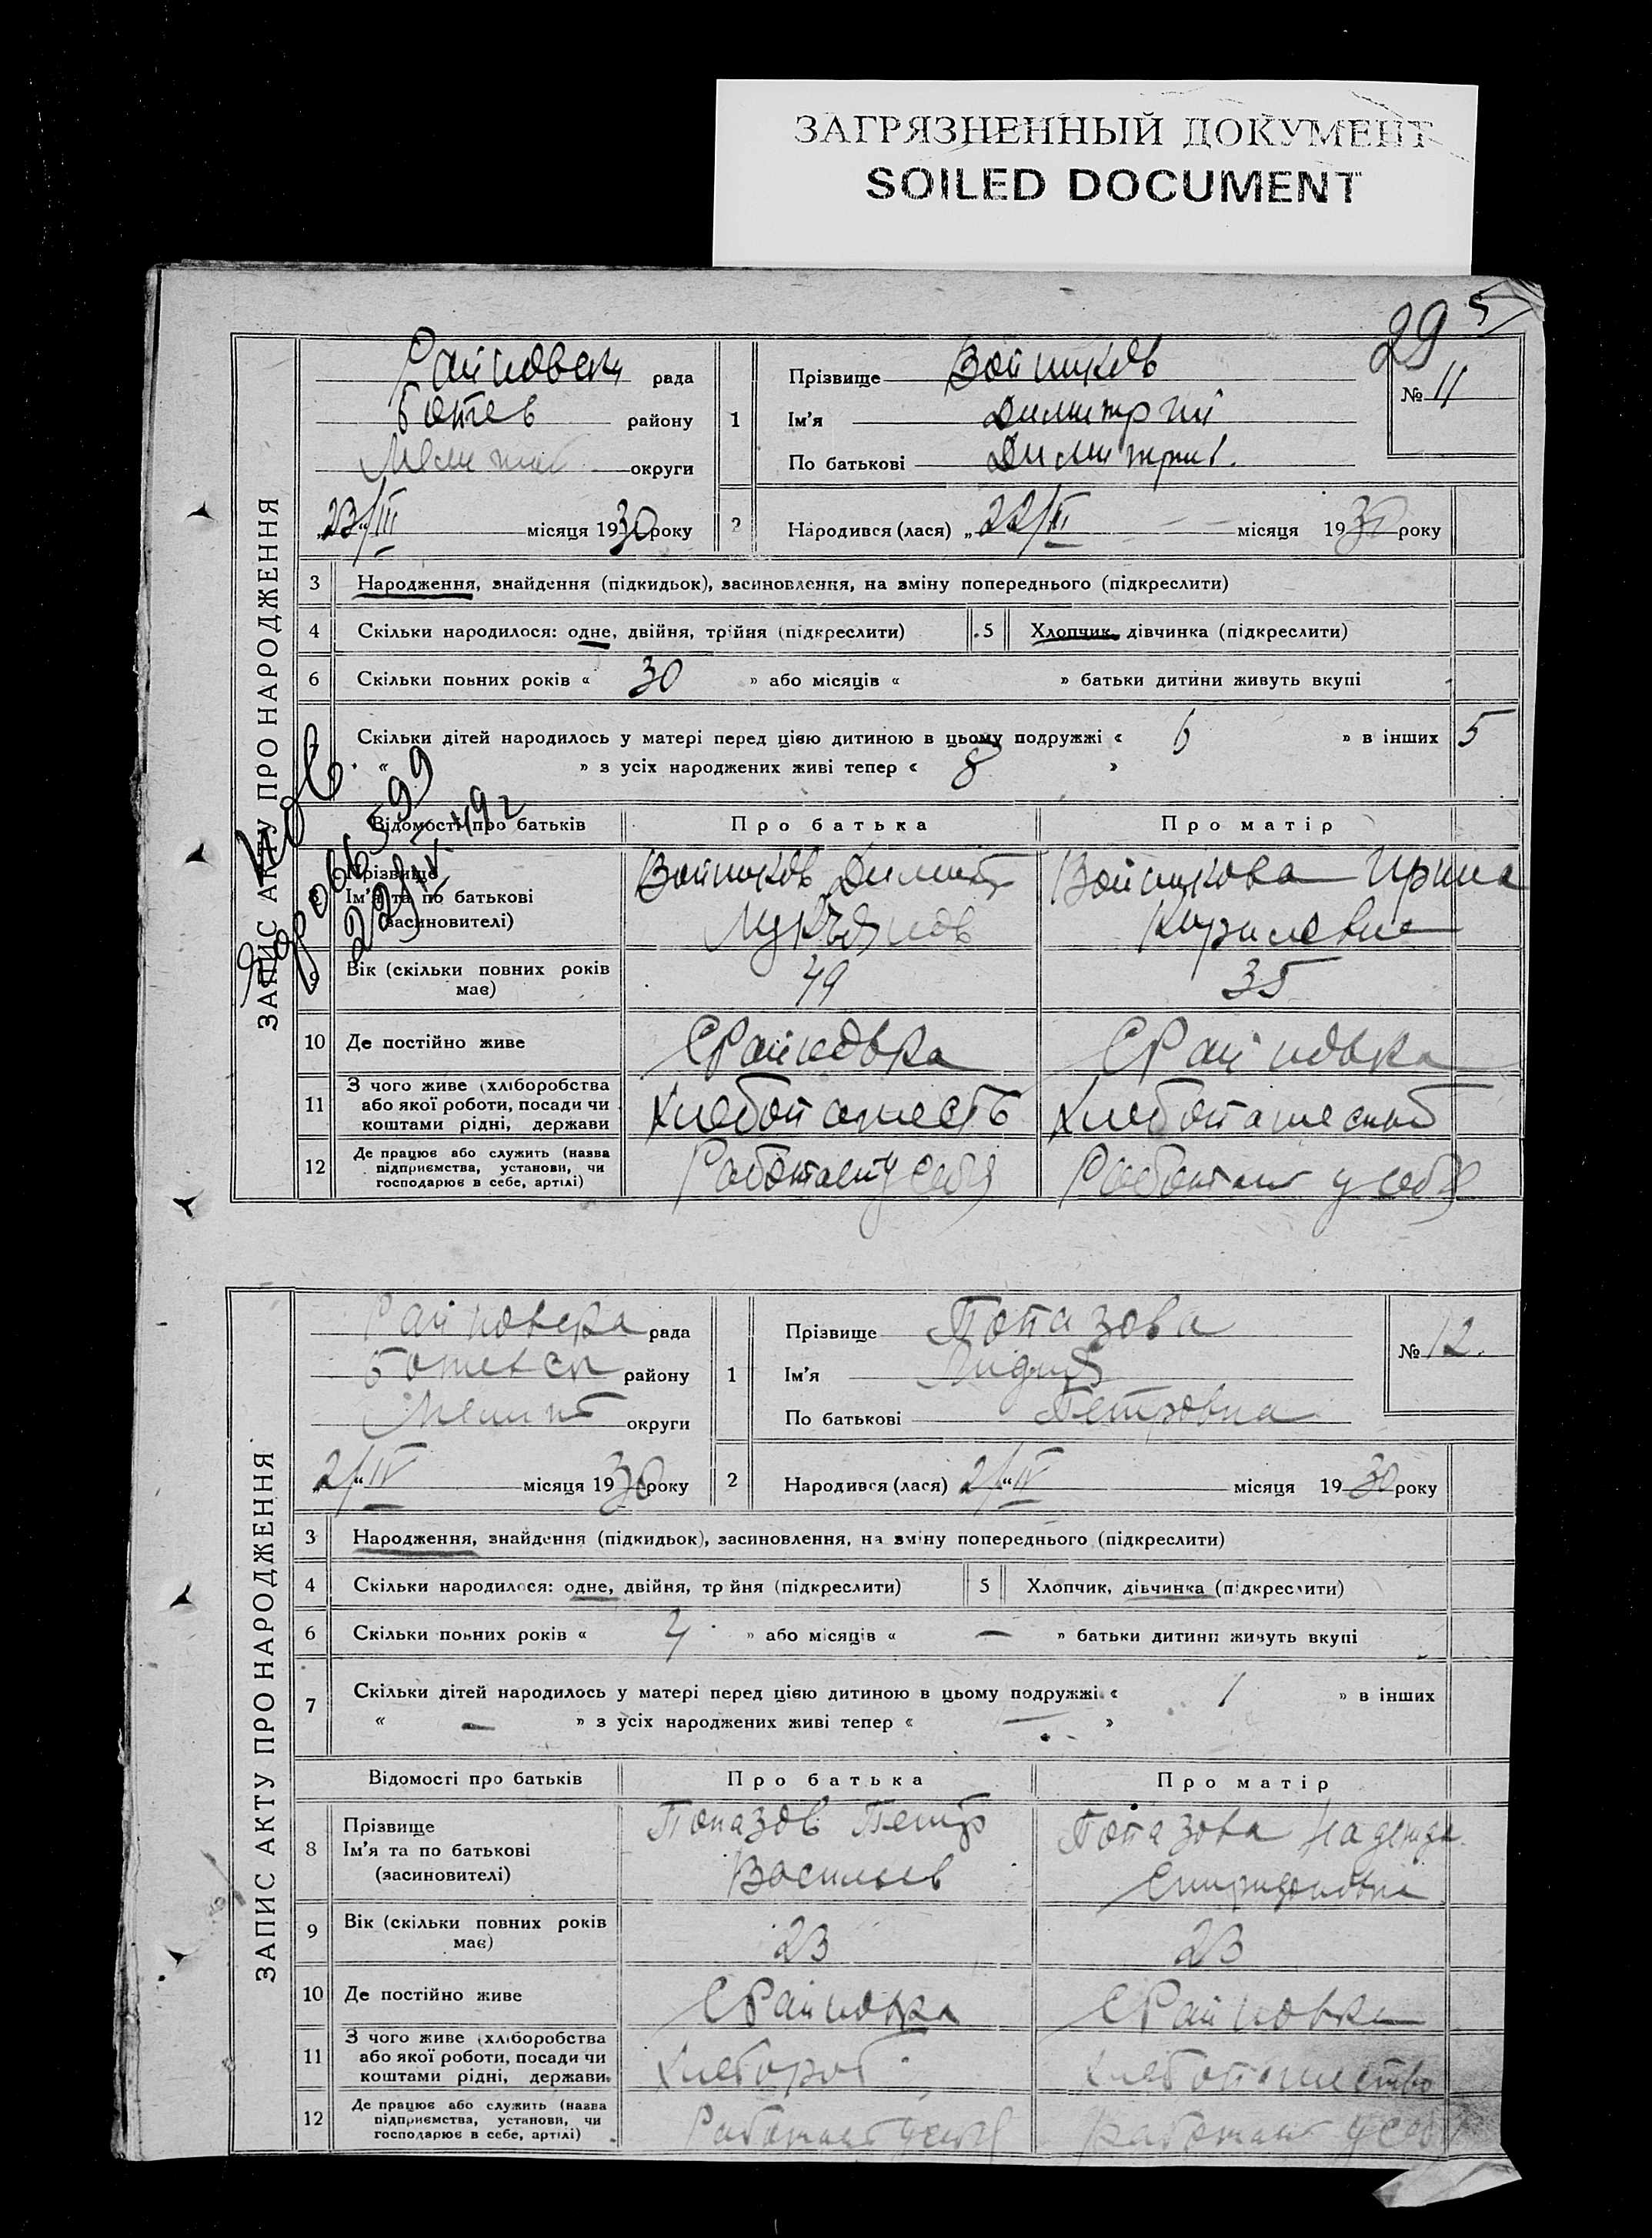 ЗАГРЯЗНЕННЫЙ ДОКУМЕНТ
SOILED DOCUMENT
29 5
ЗАПИС АКТУ ПРО НАРОДЖЕННЯ
Райновск рада
Ботев району
Мелитоп округи
„23/III місяця 1930 року
1 Прізвище Войников
Ім'я Димитрий
По батькові Димитриев.
№ 11
2 Народився (лася) „22/III місяця 1930 року
3 Народження, знайдення (підкидьок), засиновлення, на зміну попереднього (підкреслити)
4 Скільки народилося: одне, двійня, трійня (підкреслити) 5 Хлопчик, дівчинка (підкреслити)
6 Скільки повних років « 30 » або місяців « » батьки дитини живуть вкупі
Скільки дітей народилось у матері перед цією дитиною в цьому подружжі « 6 » в інших 5
« » з усіх народжених живі тепер « 8 »
066599
Відомості про батьків Про батька Про матір
8 Прізвище
Ім'я та по батькові
(засиновителі)
Войников Димитр
Лукъянов
Войникова Ирина
Кириловна
9 Вік (скільки повних років має) 49 35
10 Де постійно живе С Райновка С Райновка
11 З чого живе (хліборобства
або якої роботи, посади чи
коштами рідні, держави
Хлебопашеств Хлебопашеств
12 Де працює або служить (назва
підприємства, установи, чи
господарює в себе, артілі)
Работает у себя Работает у себя
ЗАПИС АКТУ ПРО НАРОДЖЕННЯ
Райновска рада
Ботевск району
Мелит округи
„2/“IV місяця 1930 року
1 Прізвище Попазова
Ім'я Лидия
По батькові Петровна
№ 12.
2 Народився (лася) 2/“IV місяця 1930 року
3 Народження, знайдення (підкидьок), засиновлення, на зміну попереднього (підкреслити)
4 Скільки народилося: одне, двійня, трійня (підкреслити) 5 Хлопчик, дівчинка (підкреслити)
6 Скільки повних років « 4 » або місяців « — » батьки дитини живуть вкупі
7 Скільки дітей народилось у матері перед цією дитиною в цьому подружжі « 1 » в інших
« — » з усіх народжених живі тепер « — »
Відомості про батьків Про батька Про матір
8 Прізвище
Ім'я та по батькові
(засиновителі)
Попазов Петр
Васильев
Попазова Надежда
Спиридоновна
9 Вік (скільки повних років має) 23 23
10 Де постійно живе С Райновка С Райновка
11 З чого живе (хліборобства
або якої роботи, посади чи
коштами рідні, держави
Хлебороб Хлебопашество
12 Де працює або служить (назва
підприємства, установи, чи
господарює в себе, артілі)
Работает у себя Работает у себя